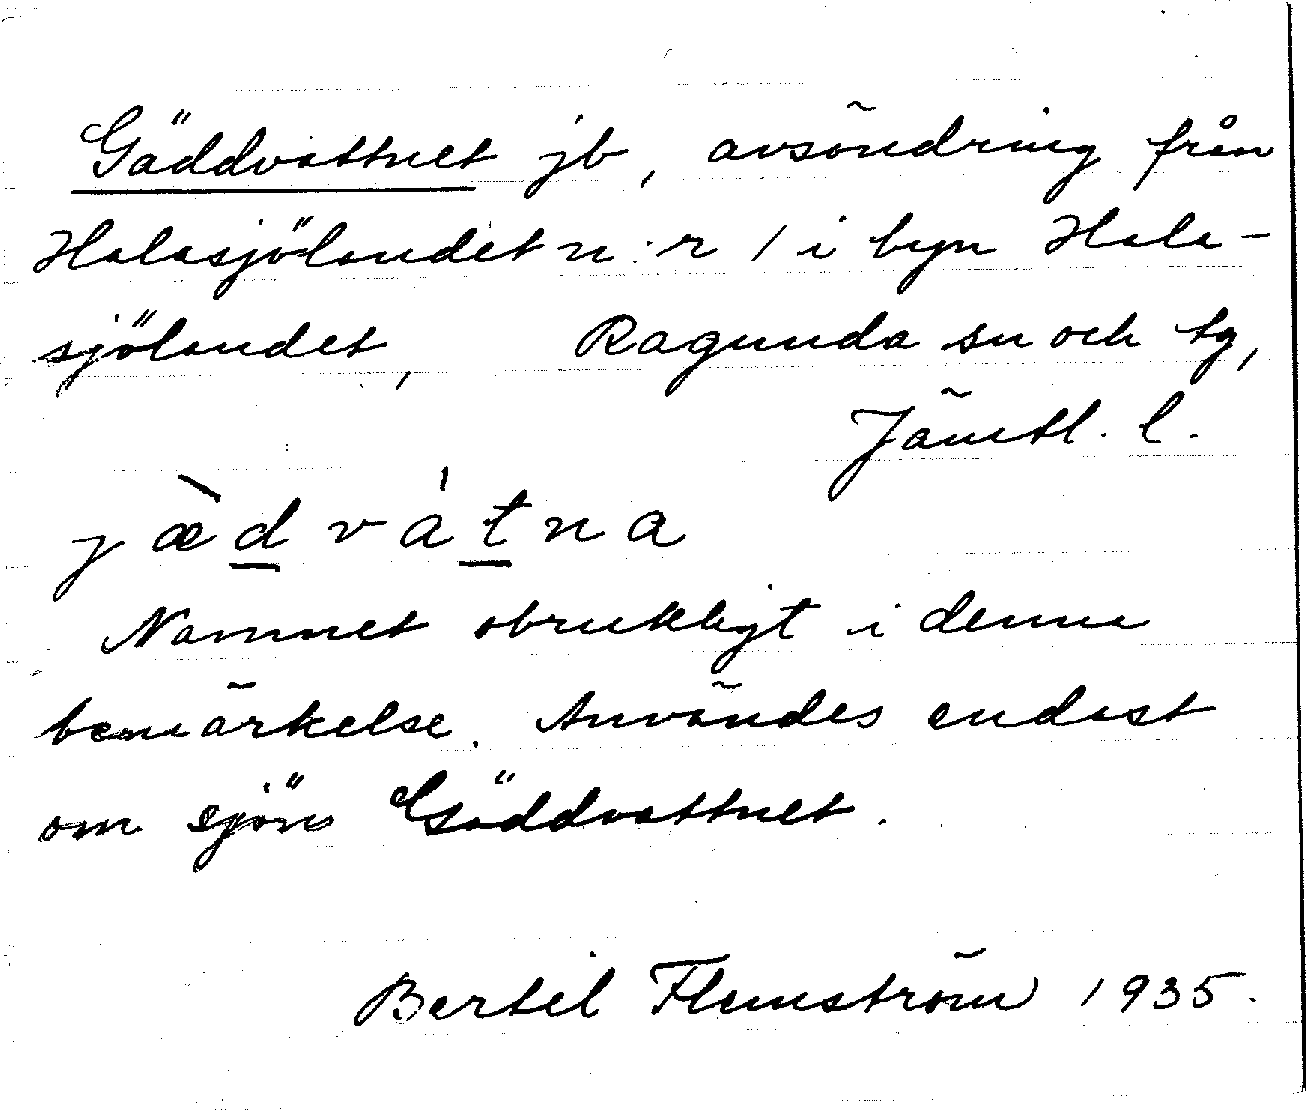 Gäddvattnet jb, avsöndring från
Halasjölandet n:r 1 i byn Hala-
sjölandet, Ragunda sn och tg,
Jämtl. l.
jæ̀dvátna
Namnet obrukligt i denna
bemärkelse. Användes endast
om sjön Gäddvattnet.
Bertil Flemström 1935.